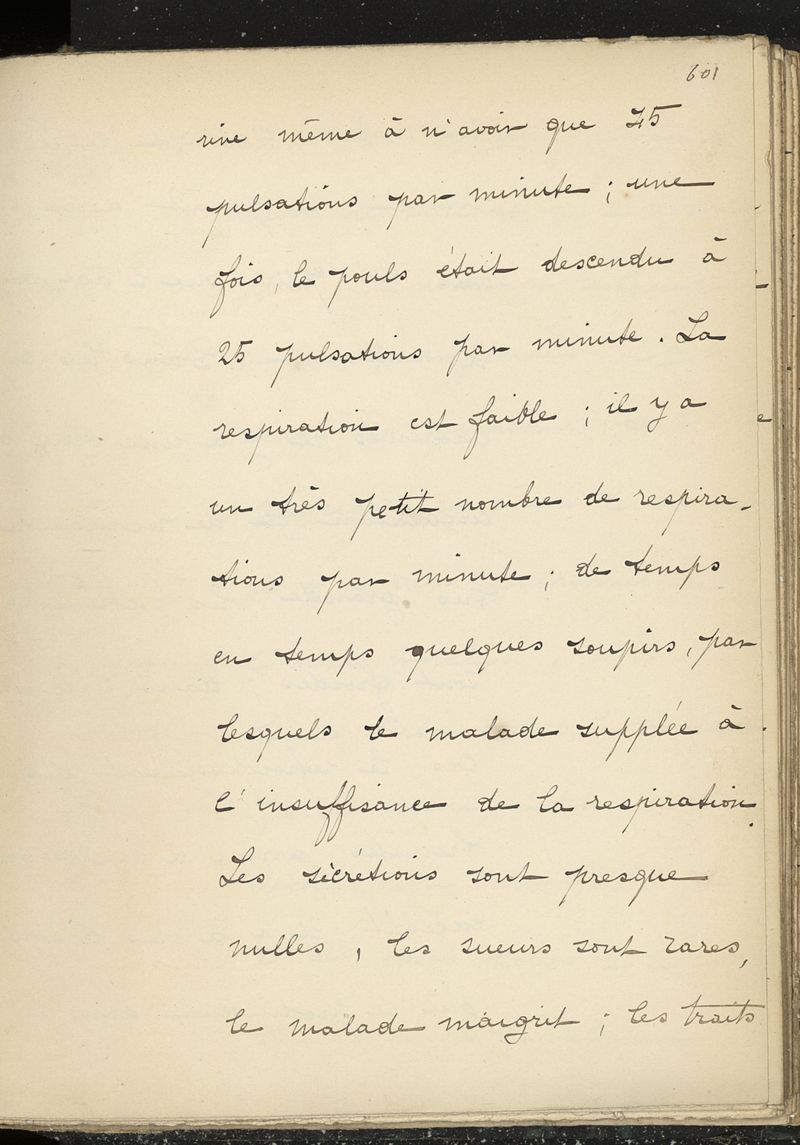 601
rive même à n'avoir que 45
pulsations par minute ; une
fois, le pouls était descendu à
25 pulsations par minute. La
respiration est faible ; il y a
un très petit nombre de respira-
tions par minute ; de temps
en temps quelques soupirs, par
lesquels le malade supplée à
l'insuffisance de la respiration.
Les sécrétions sont presque
nulles, les sueurs sont rares,
le malade maigrit ; les traits